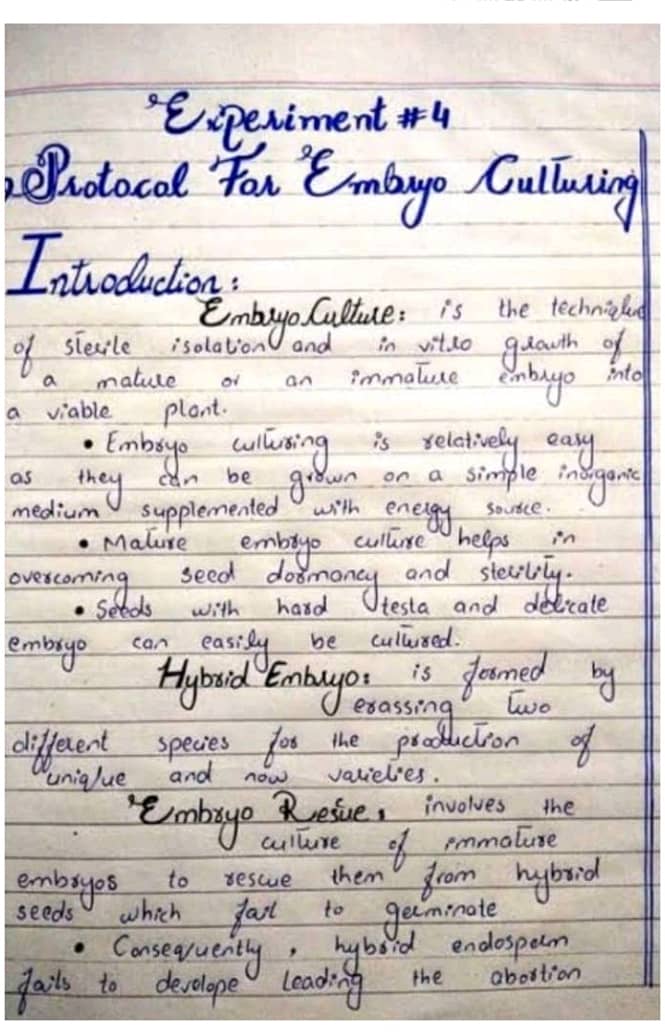 Experiment #4
Protocal For Embryo Culturing
Introduction:
Embryo Culture: is the technique
of sterile isolation and in vitro growth of
a mature or an immature embryo into
a viable plant.
• Embryo culturing is relatively easy
as they can be grown on a simple inorganic
medium supplemented with energy source.
• Mature embryo culture helps in
overcoming seed dormancy and sterility.
• Seeds with hard testa and delicate
embryo can easily be cultured.
Hybrid Embryo: is formed by
crassing two
different species for the production of
unique and now varieties.
Embryo Resue: involves the
culture of immature
embryos to rescue them from hybrid
seeds which fail to germinate
• Consequently, hybrid endosperm
fails to develope leading the abortion